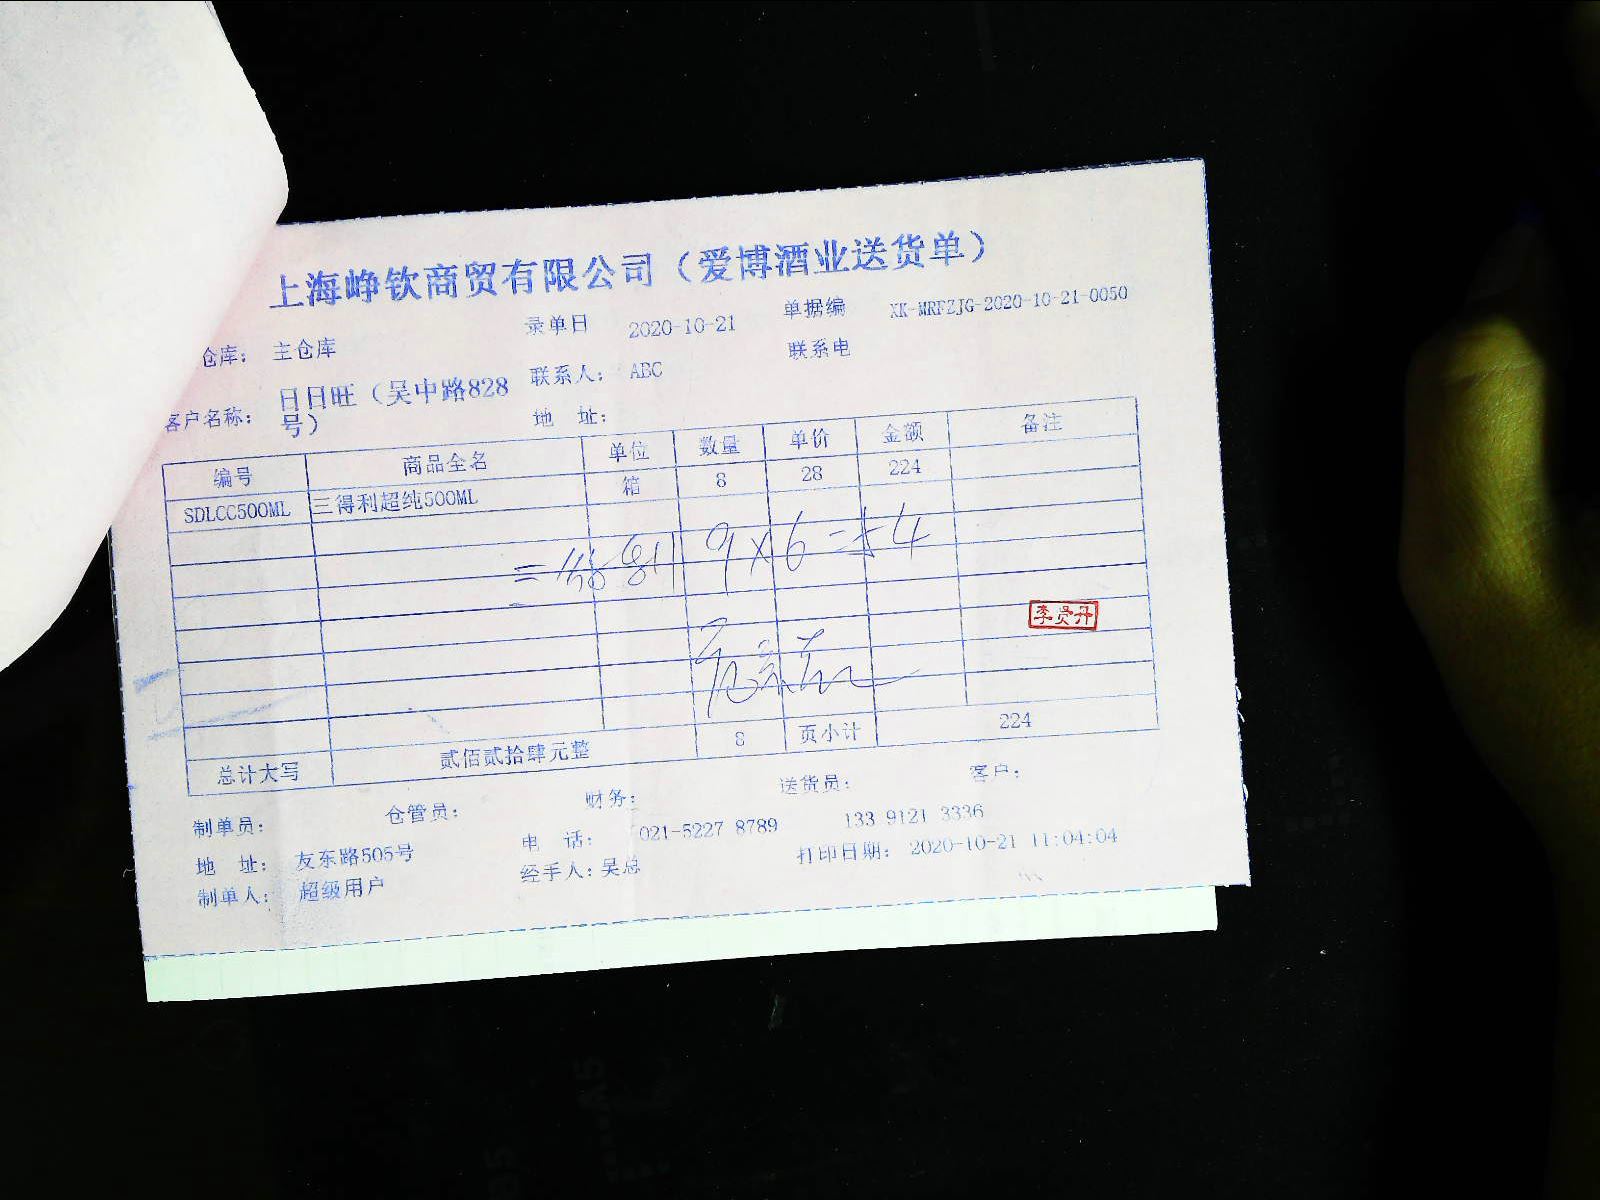 上海峥钦商贸有限公司（爱博酒业送货单）
仓库： 主仓库 录单日 2020-10-21 单据编 XK-MRFZJG-2020-10-21-0050
客户名称： 日日旺（吴中路828号） 联系人： ABC 联系电
地 址：
编号 商品全名 单位 数量 单价 金额 备注
SDLCC500ML 三得利超纯500ML 箱 8 28 224
9×6=54
李贤丹
总计大写 贰佰贰拾肆元整 8 页小计 224
制单员： 仓管员： 财务： 送货员： 客户：
地 址： 友东路505号 电 话： 021-5227 8789 133 9121 3336
制单人： 超级用户 经手人：吴总 打印日期： 2020-10-21 11:04:04